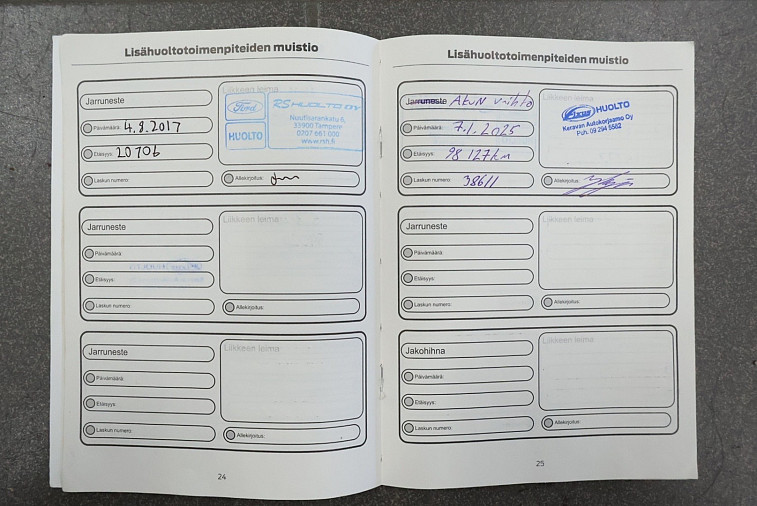 Lisähuoltotoimenpiteiden muistio
Jarruneste
Päivämäärä: 4.9.2017
Etäisyys: 20706
Laskun numero:
Liikkeen leima
Ford
HUOLTO
RS HUOLTO OY
Nuutisarankatu 6,
33900 Tampere
0707 661 000
www.rsh.fi
Allekirjoitus:
Jarruneste
Päivämäärä:
Etäisyys:
Laskun numero:
Liikkeen leima
Allekirjoitus:
Jarruneste
Päivämäärä:
Etäisyys:
Laskun numero:
Liikkeen leima
Allekirjoitus:
24
Lisähuoltotoimenpiteiden muistio
Jarruneste Akun vaihto
Päivämäärä: 7.1.2025
Etäisyys: 98 127km
Laskun numero: 38611
Liikkeen leima
Fixus HUOLTO
Keravan Autokorjaamo Oy
Puh. 09 294 5582
Allekirjoitus:
Jarruneste
Päivämäärä:
Etäisyys:
Laskun numero:
Liikkeen leima
Allekirjoitus:
Jakohihna
Päivämäärä:
Etäisyys:
Laskun numero:
Liikkeen leima
Allekirjoitus:
25